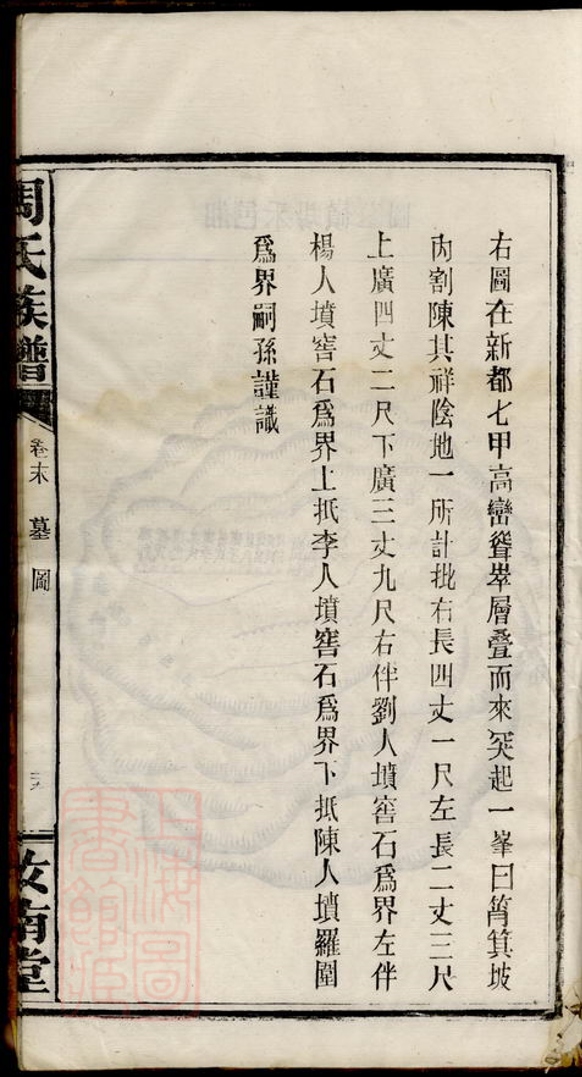 右圖在新都七甲高巒聳翠層疊而來突起一峯曰筲箕坡
內割陳其祥陰地一所計批右長四丈一尺左長二丈三尺
上廣四丈二尺下廣三丈九尺右伴劉人墳窖石爲界左伴
楊人墳窖石爲界上抵李人墳窖石爲界下抵陳人墳羅圍
爲界嗣孫謹識
周氏族譜
卷末 墓圖
汝南堂